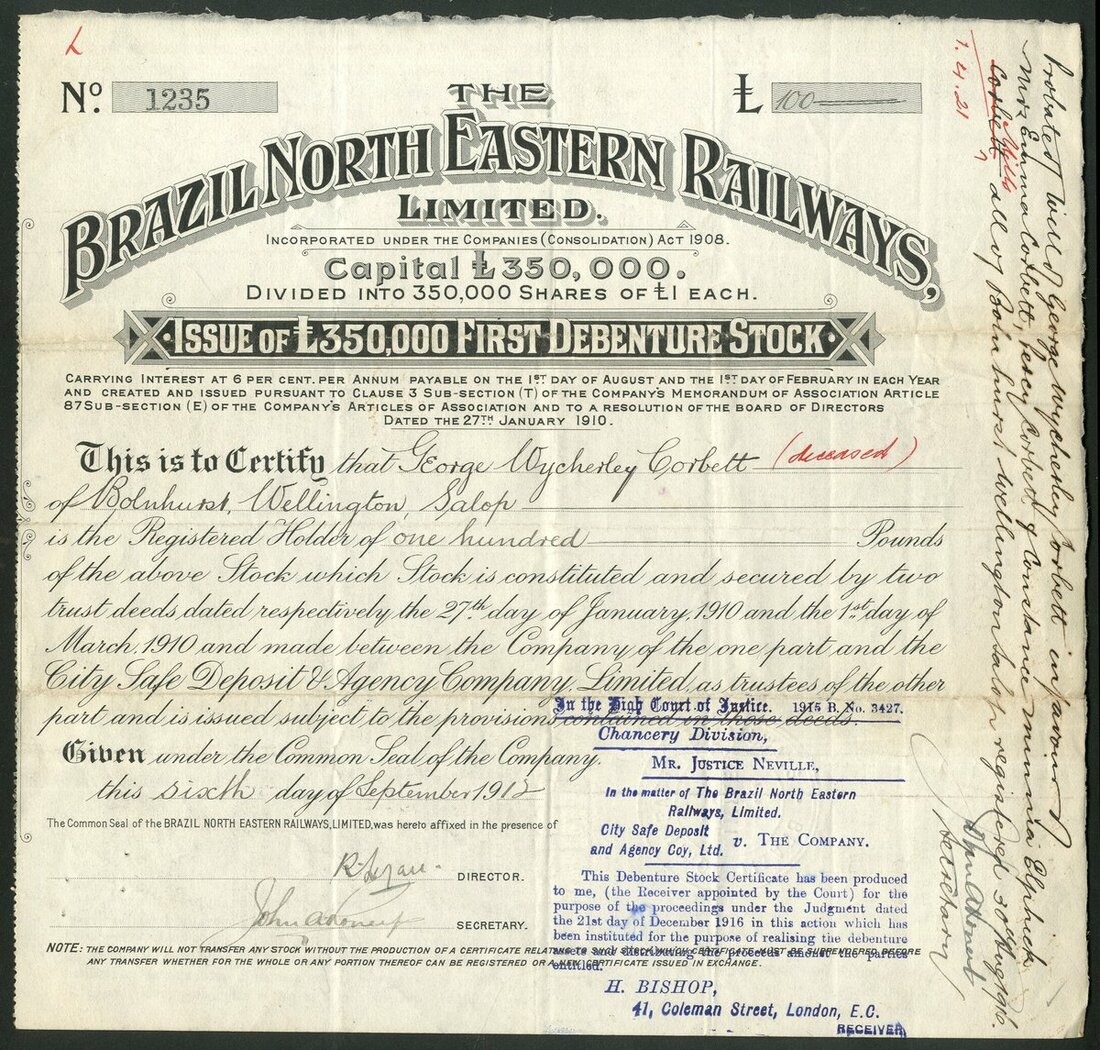 L
No. 1235
£ 100
THE
BRAZIL NORTH EASTERN RAILWAYS,
LIMITED.
INCORPORATED UNDER THE COMPANIES (CONSOLIDATION) ACT 1908.
Capital £350,000.
DIVIDED INTO 350,000 SHARES OF £1 EACH.
ISSUE OF £350,000 FIRST DEBENTURE STOCK
CARRYING INTEREST AT 6 PER CENT. PER ANNUM PAYABLE ON THE 1ST DAY OF AUGUST AND THE 1ST DAY OF FEBRUARY IN EACH YEAR
AND CREATED AND ISSUED PURSUANT TO CLAUSE 3 SUB-SECTION (T) OF THE COMPANY'S MEMORANDUM OF ASSOCIATION ARTICLE
87 SUB-SECTION (E) OF THE COMPANY'S ARTICLES OF ASSOCIATION AND TO A RESOLUTION OF THE BOARD OF DIRECTORS
DATED THE 27TH JANUARY 1910.
This is to Certify that George Wycherley Corbett (deceased)
of Bolnhurst, Wellington, Salop
is the Registered Holder of one hundred Pounds
of the above Stock which Stock is constituted and secured by two
trust deeds dated respectively the 27th day of January, 1910 and the 1st day of
March, 1910 and made between the Company of the one part and the
City Safe Deposit & Agency Company, Limited, as trustees of the other
part and is issued subject to the provisions contained in those deeds.
Given under the Common Seal of the Company.
this sixth day of September 1912
The Common Seal of the BRAZIL NORTH EASTERN RAILWAYS, LIMITED, was hereto affixed in the presence of
DIRECTOR.
SECRETARY.
NOTE: THE COMPANY WILL NOT TRANSFER ANY STOCK WITHOUT THE PRODUCTION OF A CERTIFICATE RELATING TO SUCH STOCK WHICH CERTIFICATE MUST BE SURRENDERED BEFORE
ANY TRANSFER WHETHER FOR THE WHOLE OR ANY PORTION THEREOF CAN BE REGISTERED OR A NEW CERTIFICATE ISSUED IN EXCHANGE.
In the High Court of Justice. 1915 B. No. 3427.
Chancery Division,
MR. JUSTICE NEVILLE,
In the matter of The Brazil North Eastern
Railways, Limited.
City Safe Deposit
and Agency Coy, Ltd. v. THE COMPANY.
This Debenture Stock Certificate has been produced
to me, (the Receiver appointed by the Court) for the
purpose of the proceedings under the Judgment dated
the 21st day of December 1916 in this action which has
been instituted for the purpose of realising the debenture
assets and distributing the proceeds amongst the parties
entitled.
H. BISHOP,
41, Coleman Street, London, E.C.
RECEIVER,
Probated Will of George Wycherley Corbett in favour of
Mrs Emma Corbett, Percy Corbett & Constance Minnie Elphick
Corbett, Mills all of Bolnhurst Wellington Salop registered 30 Aug 1916.
Secretary
1.4.21